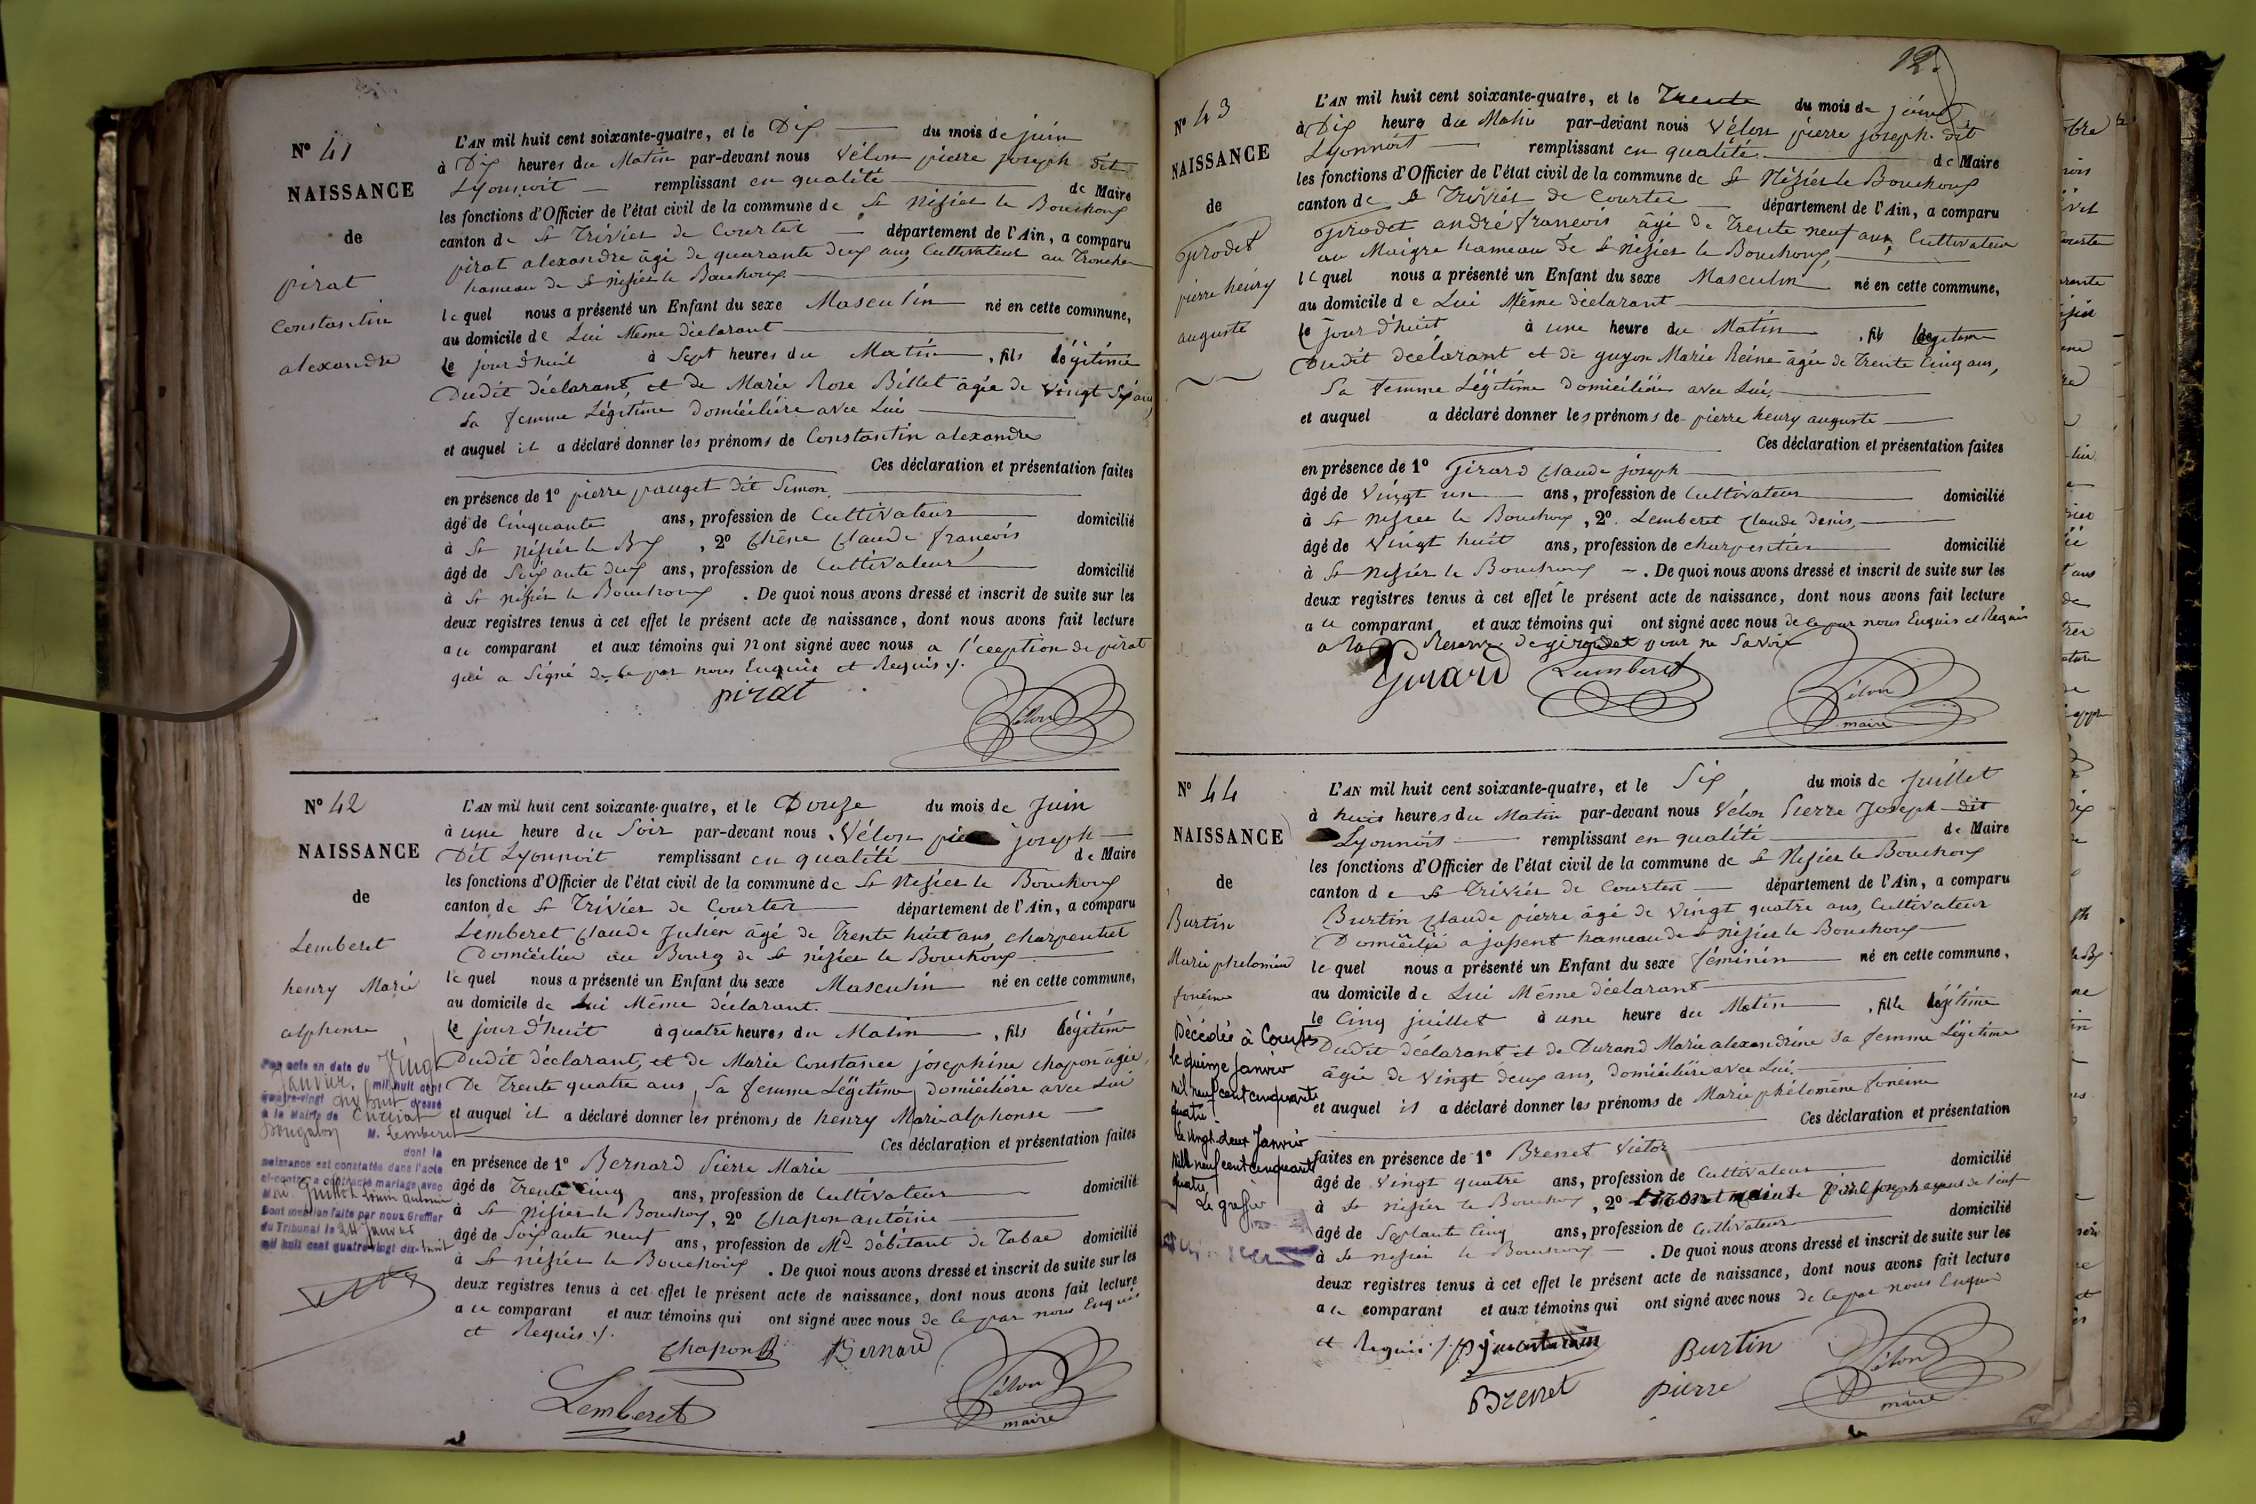 N° 41
NAISSANCE
de
pirat
Constantin
alexandre
L'AN mil huit cent soixante-quatre, et le Dix du mois de juin
à Dix heures du Matin par-devant nous Vélon pierre joseph dit
Lyonnoit remplissant en qualité de Maire
les fonctions d'Officier de l'état civil de la commune de St Nizier le Bouchoux
canton de St Trivier de Courtes département de l'Ain, a comparu
pirat alexandre âgé de quarante deux ans, Cultivateur au
hameau de St nizier le Bouchoux
lequel nous a présenté un Enfant du sexe Masculin né en cette commune,
au domicile de Lui Même déclarant
le jour d'huit à Sept heures du Matin, fils légitime
Dudit déclarant, et de Marie Rose Billet âgée de Vingt Six ans
Sa femme Légitime Domiciliée avec Lui
et auquel il a déclaré donner les prénoms de Constantin alexandre
Ces déclaration et présentation faites
en présence de 1° pierre pauget dit Simon
âgé de Cinquante ans, profession de Cultivateur domicilié
à St nizier le Bx, 2° Chêne Claude françois
âgé de Soixante deux ans, profession de Cultivateur domicilié
à St nizier le Bouchoux. De quoi nous avons dressé et inscrit de suite sur les
deux registres tenus à cet effet le présent acte de naissance, dont nous avons fait lecture
au comparant et aux témoins qui Nont signé avec nous a l'ception de pirat
qui a Signé de ce par nous Enquis et Requis ./.
pirat
Vélon
N° 42
NAISSANCE
de
Lemberet
henry Marie
alphonse
Par acte en date du Vingt
Janvier, mil huit cent
quatre-vingt dix huit dressé
à la Mairie de Curciat
Dongalon M. Lemberet
dont la
naissance est constatée dans l'acte
ci-contre a contracté mariage avec
Dont mention faite par nous Greffier
du Tribunal le 24 Janvier
mil huit cent quatre-vingt dix-huit
L'AN mil huit cent soixante-quatre, et le Douze du mois de Juin
à une heure du Soir par-devant nous Vélon joseph
Dit Lyonnoit remplissant en qualité de Maire
les fonctions d'Officier de l'état civil de la commune de St Nizier le Bouchoux
canton de St Trivier de Courtes département de l'Ain, a comparu
Lemberet Claude Julien âgé de Trente huit ans, charpentier
Domicilié au Bourg de St nizier le Bouchoux
lequel nous a présenté un Enfant du sexe Masculin né en cette commune,
au domicile de Lui Même déclarant.
le jour d'huit à quatre heures du Matin, fils légitime
Dudit déclarant, et de Marie Constance joséphine chapon âgée
De Trente quatre ans, Sa femme Légitime, domiciliée avec Lui
et auquel il a déclaré donner les prénoms de henry Marie alphonse
Ces déclaration et présentation faites
en présence de 1° Bernard Pierre Marie
âgé de Trente Cinq ans, profession de Cultivateur domicilié
à St Nizier le Bouchoux, 2° Chapon antoine
âgé de Soixante neuf ans, profession de Md débitant de Tabac domicilié
à St nizier le Bouchoux. De quoi nous avons dressé et inscrit de suite sur les
deux registres tenus à cet effet le présent acte de naissance, dont nous avons fait lecture
au comparant et aux témoins qui ont signé avec nous de ce par nous Enquis
et Requis ./.
Chapon Bernard
Lemberet
Vélon
maire
12.
N° 43
NAISSANCE
de
Girodet
pierre henry
auguste
L'AN mil huit cent soixante-quatre, et le Trente du mois de
à Dix heure du Matin par-devant nous Vélon pierre joseph dit
Lyonnoit remplissant en qualité de Maire
les fonctions d'Officier de l'état civil de la commune de St Nizier le Bouchoux
canton de St Trivier de Courtes département de l'Ain, a comparu
Girodet andré françois âgé de Trente neuf ans, Cultivateur
au Maigre hameau de St nizier le Bouchoux,
lequel nous a présenté un Enfant du sexe Masculin né en cette commune,
au domicile de Lui Même déclarant
le jour d'huit à une heure du Matin, fils légitime
Dudit déclarant et de guyon Marie Reine âgée de Trente Cinq ans,
Sa femme Légitime domiciliée avec Lui,
et auquel a déclaré donner les prénoms de pierre henry auguste
Ces déclaration et présentation faites
en présence de 1° Girard Claude joseph
âgé de Vingt un ans, profession de Cultivateur domicilié
à St nizier le Bouchoux, 2° Lemberet Claude denis,
âgé de Vingt huit ans, profession de charpentier domicilié
à St Nizier le Bouchoux. De quoi nous avons dressé et inscrit de suite sur les
deux registres tenus à cet effet le présent acte de naissance, dont nous avons fait lecture
au comparant et aux témoins qui ont signé avec nous de ce par nous Enquis et Requis
a la Reserve de girodet pour ne Savoir
Girard Lemberet
Vélon
maire
N° 44
NAISSANCE
de
Burtin
Marie phelomène
fonéine
Décédée à Courtes
le quinze Janvier
mil neuf cent cinquante
quatre
Le vingt deux Janvier
mille neuf cent cinquante
quatre
Le greffier
L'AN mil huit cent soixante-quatre, et le Six du mois de Juillet
à huit heures du Matin par-devant nous Vélon Pierre Joseph dit
Lyonnois remplissant en qualité de Maire
les fonctions d'Officier de l'état civil de la commune de St Nizier le Bouchoux
canton de St Trivier de Courtes département de l'Ain, a comparu
Burtin Claude pierre âgé de Vingt quatre ans, Cultivateur
Domicilié a jassent hameau de St nizier le Bouchoux
lequel nous a présenté un Enfant du sexe féminin né en cette commune,
au domicile de Lui Même déclarant
le Cinq juillet à une heure du Matin, fille légitime
Dudit déclarant et de Durand Marie alexandrine Sa femme Légitime
âgée de Vingt deux ans, domiciliée avec Lui.
et auquel il a déclaré donner les prénoms de Marie phélomène fonéine
Ces déclaration et présentation
faites en présence de 1° Bresset Victor domicilié
âgé de Vingt quatre ans, profession de Cultivateur
à St nizier le Bouchoux, 2° domicilié
âgé de Septante Cinq ans, profession de Cultivateur
à St nizier le Bouchoux. De quoi nous avons dressé et inscrit de suite sur les
deux registres tenus à cet effet le présent acte de naissance, dont nous avons fait lecture
au comparant et aux témoins qui ont signé avec nous de ce par nous Enquis
et Requis ./. Burtin
Bresset pierre
Vélon
maire